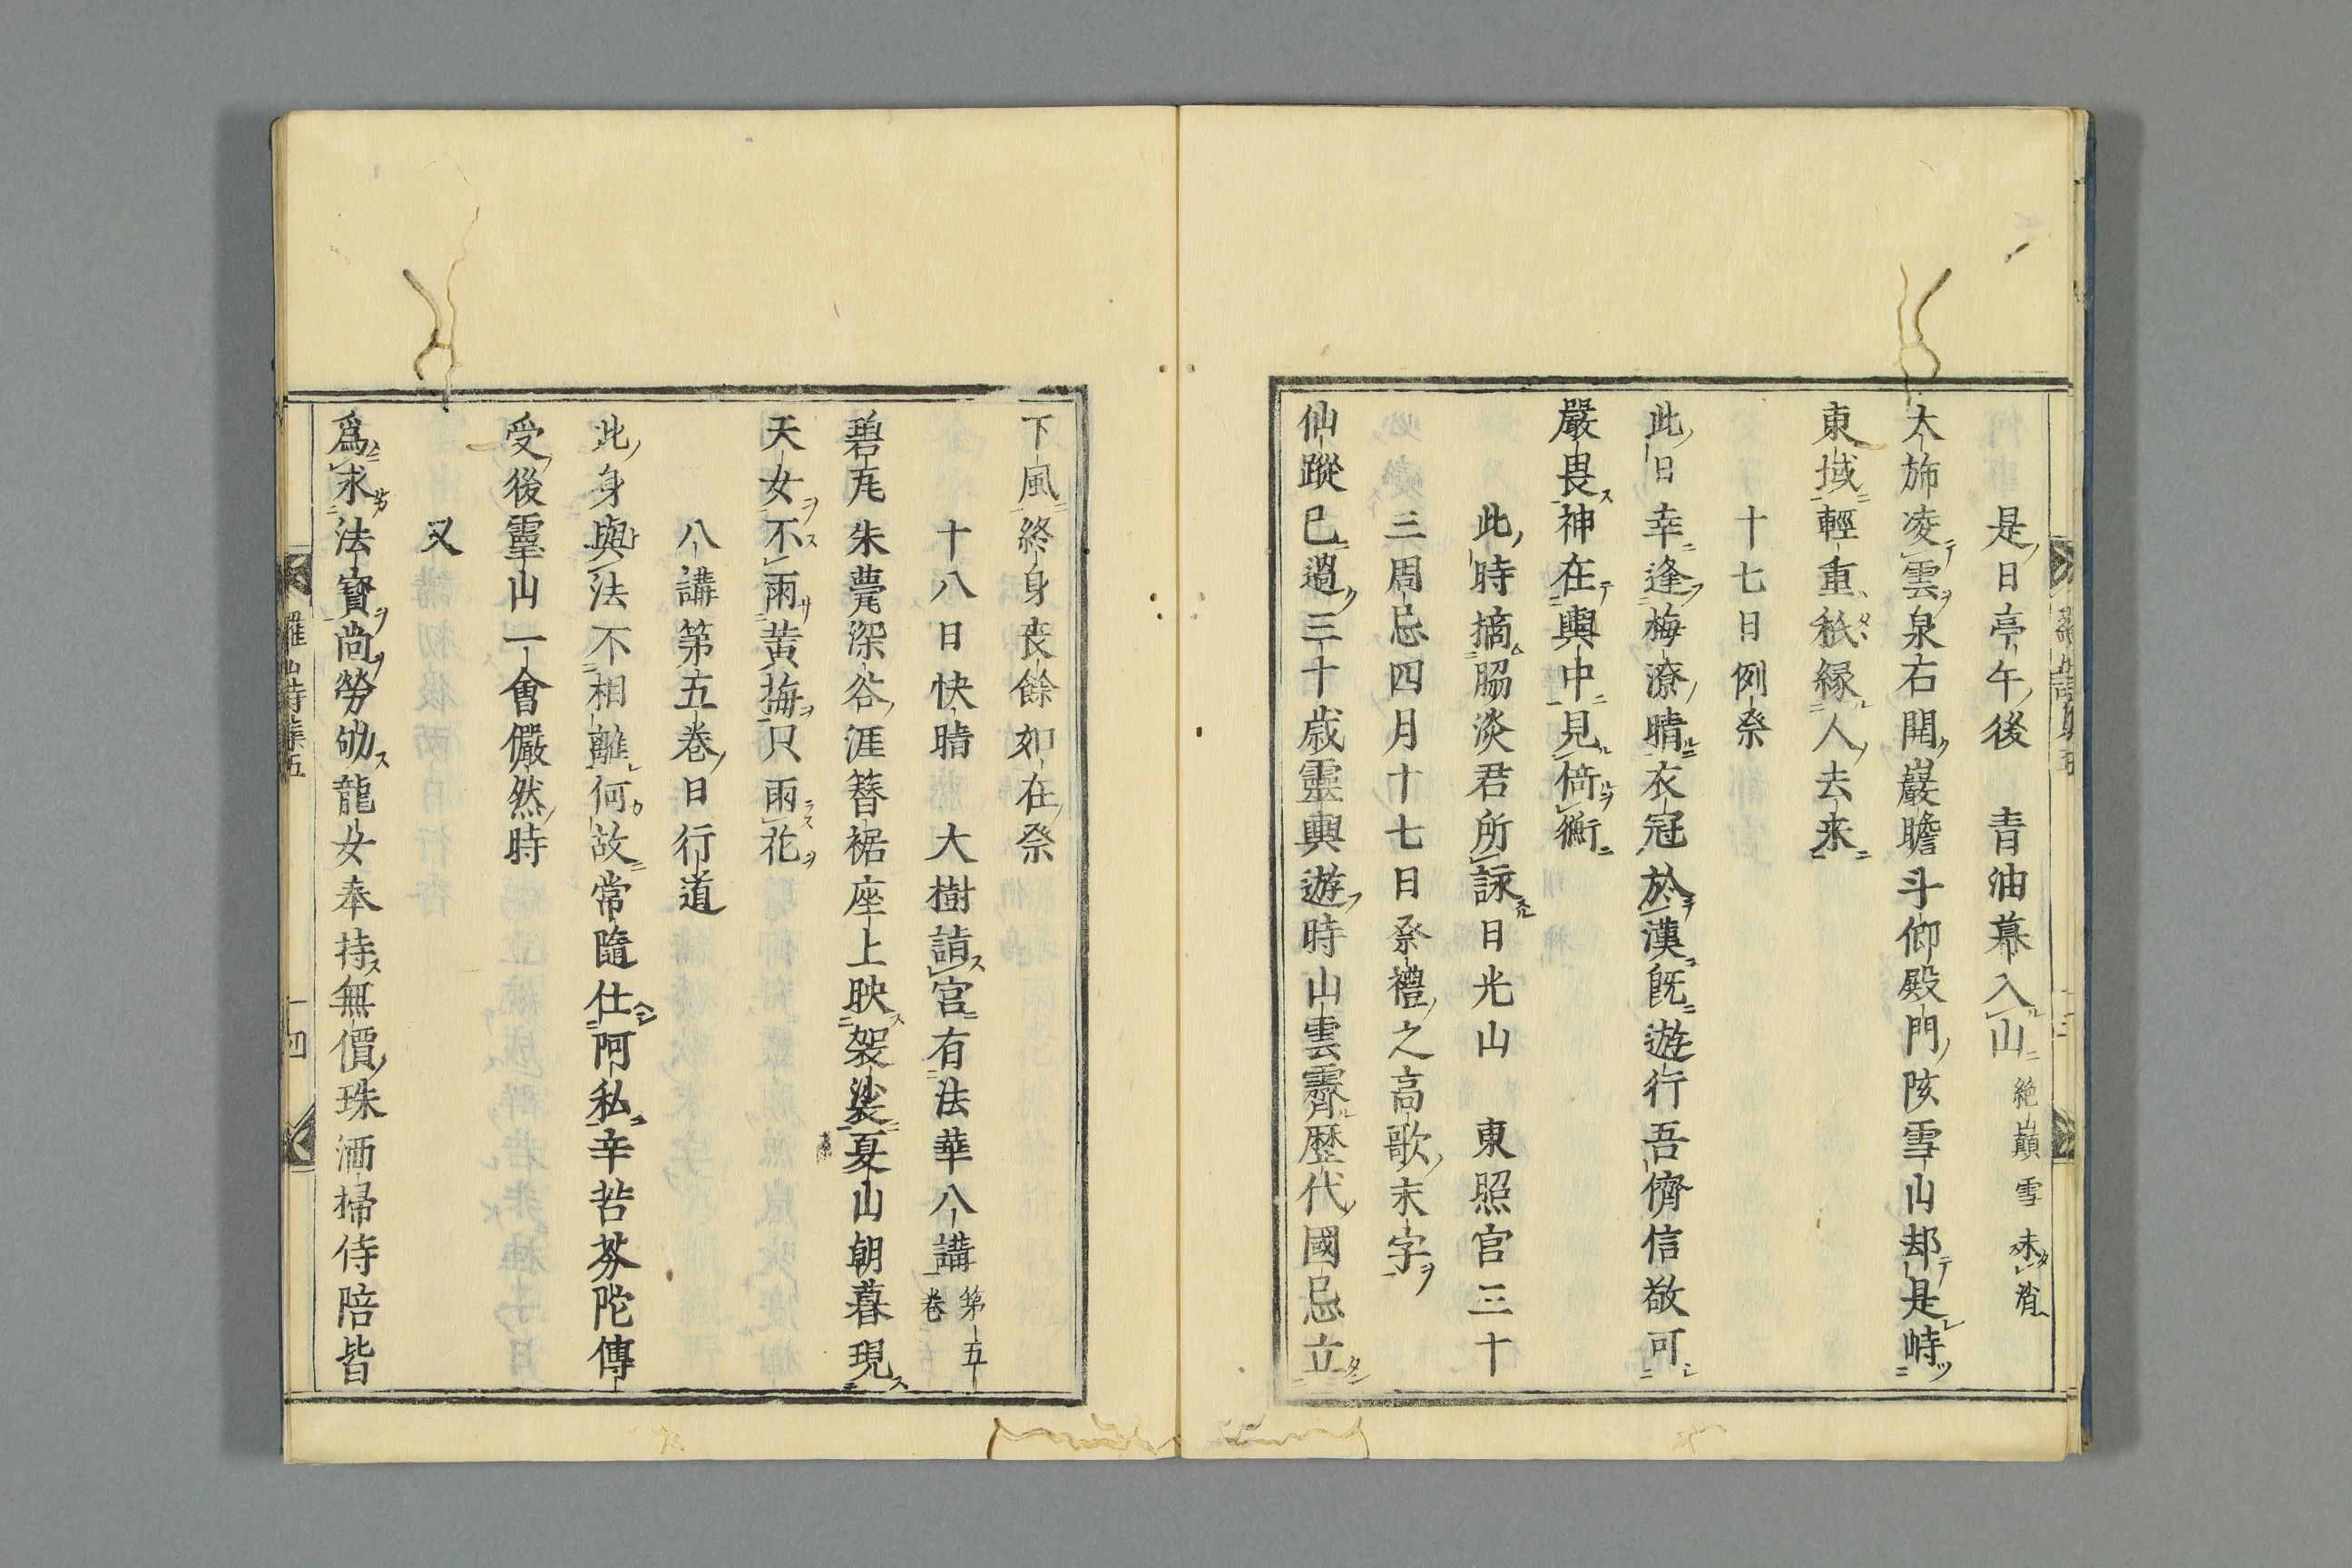 是日亭午後　青油幕入山絶巓雪未消
太旆凌雲泉右開巖瞻斗仰殿門陔雪山却是峙
東域輕重秖縁人去来
十七日例祭
此日幸逢梅潦晴衣冠於漢既遊行吾儕信敬可
嚴畏神在輿中見倚衡
此時摘脇淡君所詠日光山　東照宮三十
三周忌四月十七日祭禮之高歌末字
仙蹤已過三十歳靈輿遊時山雲霽歴代國忌立
下風終身喪餘如在祭
十八日快晴　大樹詣宮有法華八講第五卷
碧瓦朱甍深谷涯簪裾座上映袈裟夏山朝暮現
天女不雨黄梅只雨花
八講第五卷日行道
此身與法不相離何故常隨仕阿私辛苦芬陀傳
受後靈山一會儼然時
又
爲求法寶尚勞劬龍女奉持無價珠洒掃侍陪皆
羅山詩集五
十四